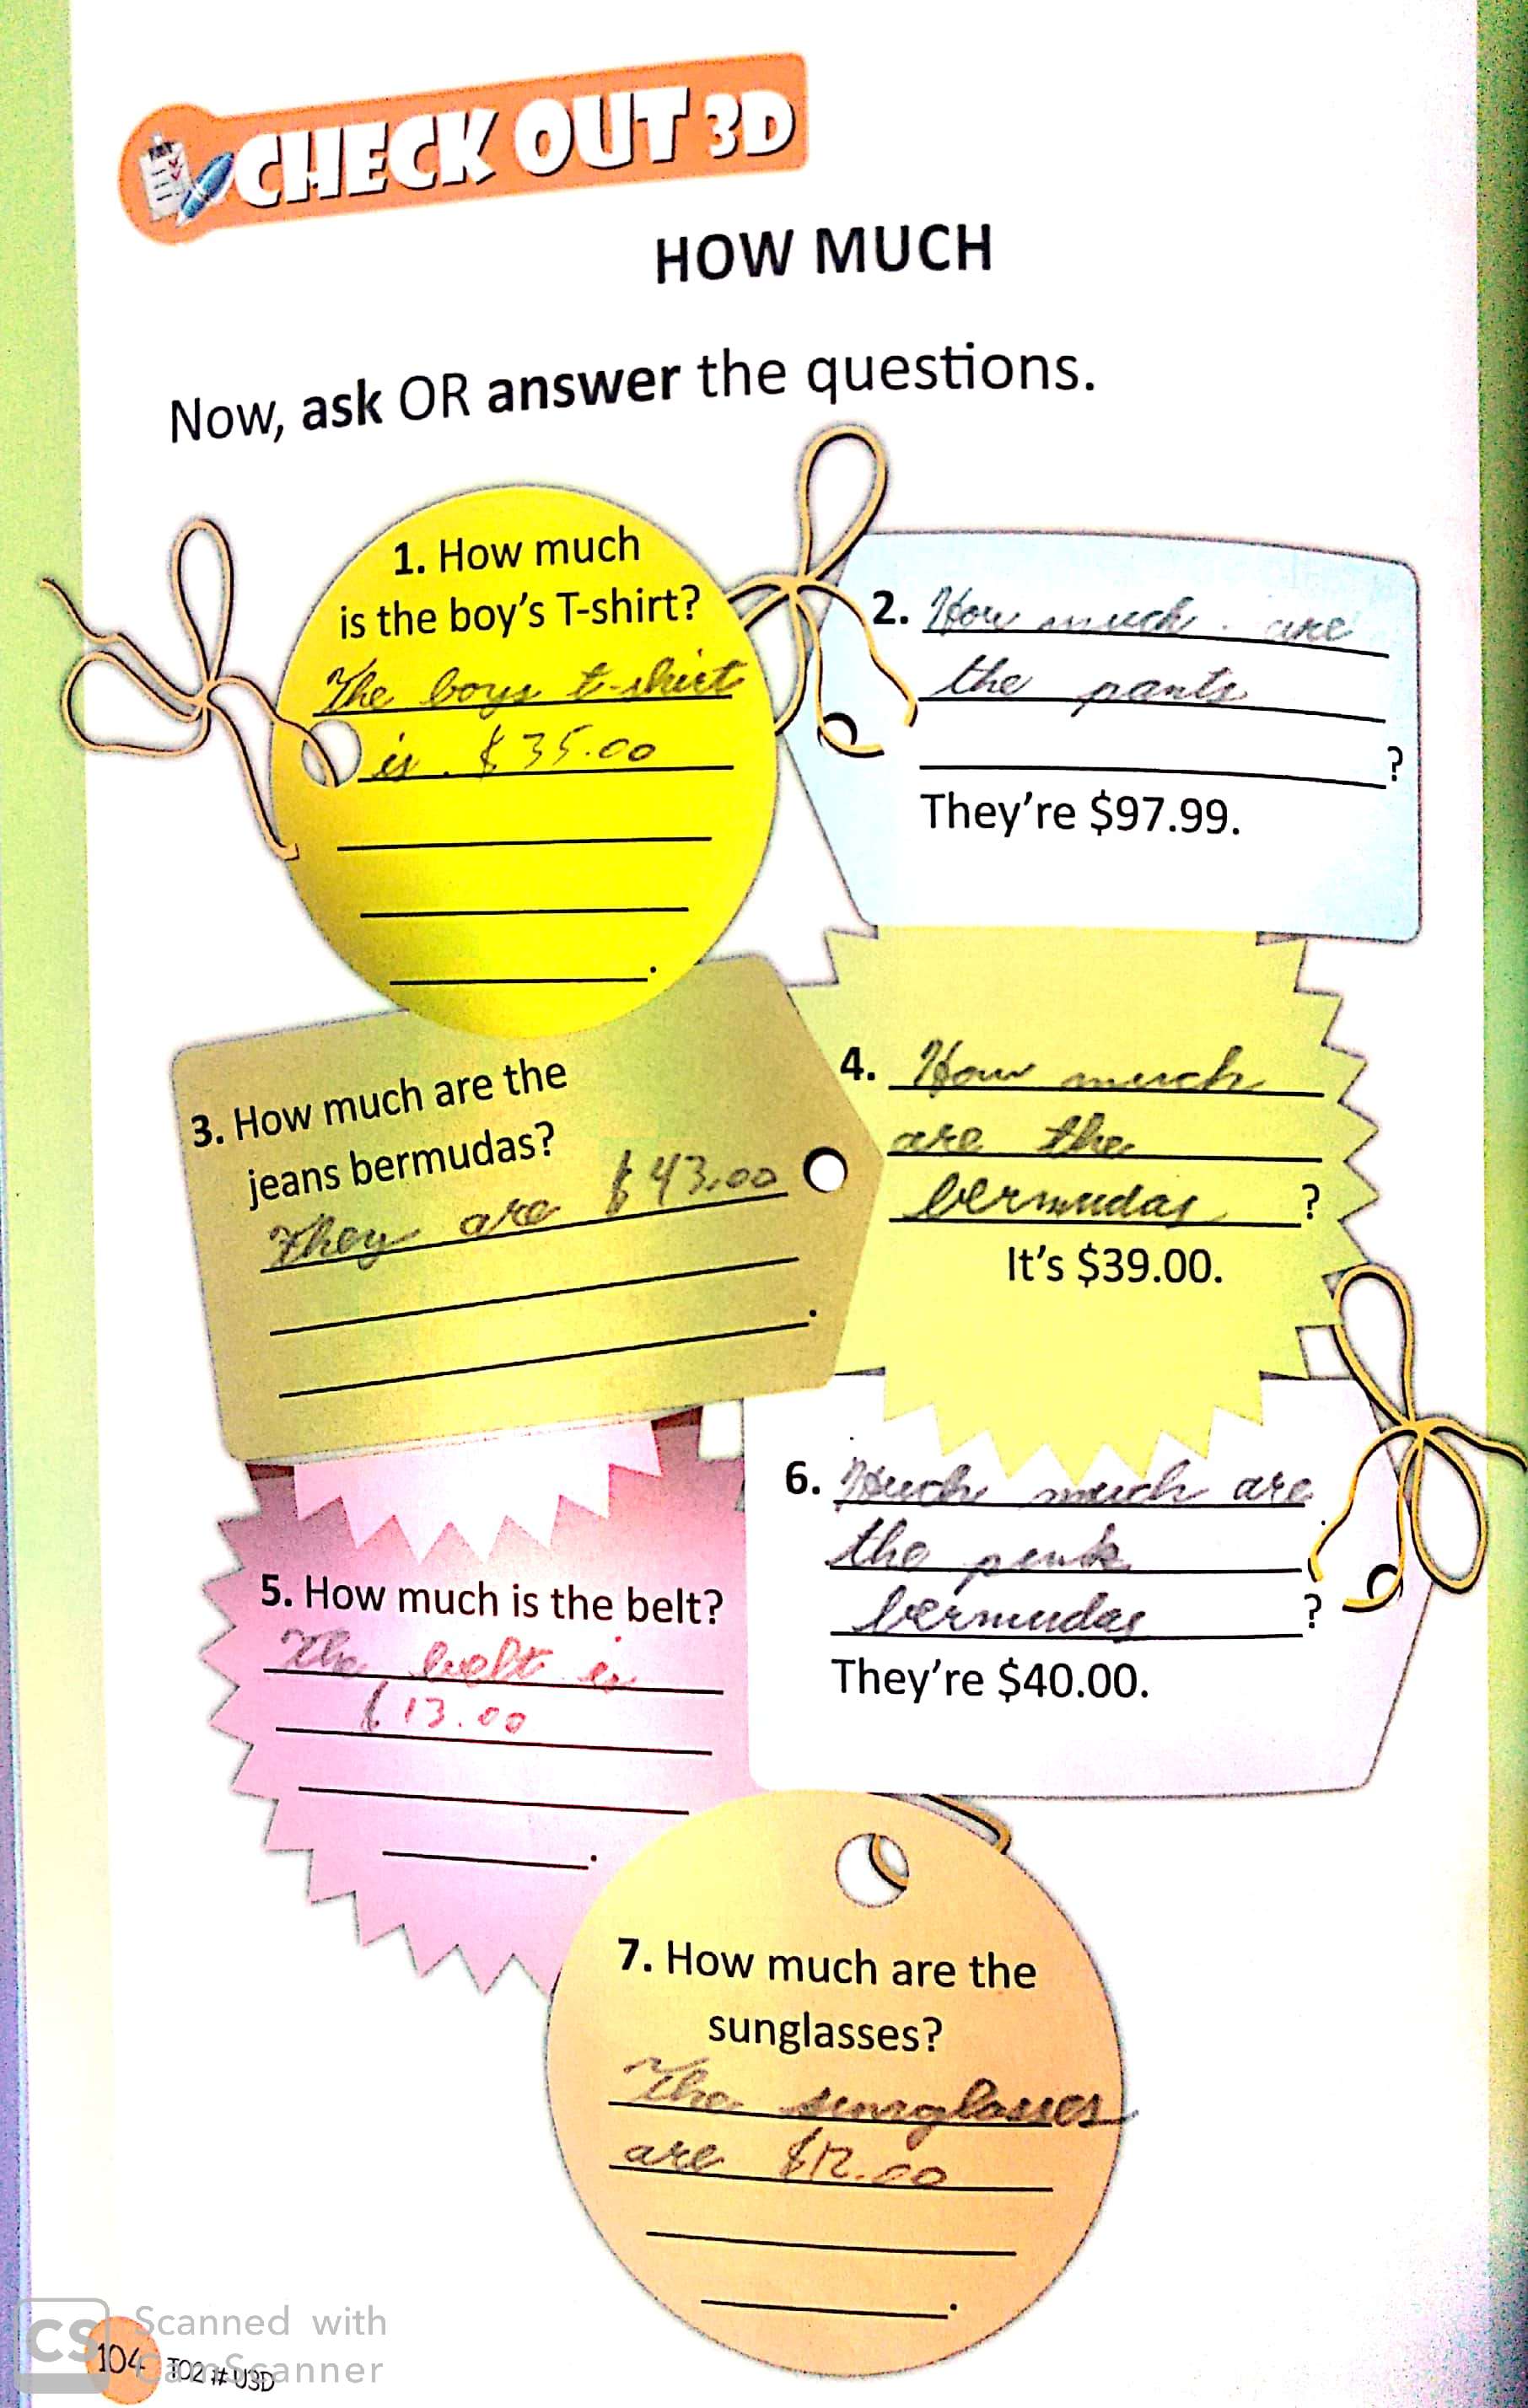 CHECK OUT 3D
HOW MUCH
Now, ask OR answer the questions.
1. How much
is the boy's T-shirt?
The boys t-shirt
is . $35.00
2. How much . are
the pants
?
They're $97.99.
3. How much are the
jeans bermudas?
They are $43.00
.
4. How much
are the
bermudas ?
It's $39.00.
5. How much is the belt?
The belt is
$13.00
.
6. Huch much are
the penk
bermudas ?
They're $40.00.
7. How much are the
sunglasses?
The sunglasses
are $12.00
.
104 TO2 # U3D
CS Scanned with
CamScanner